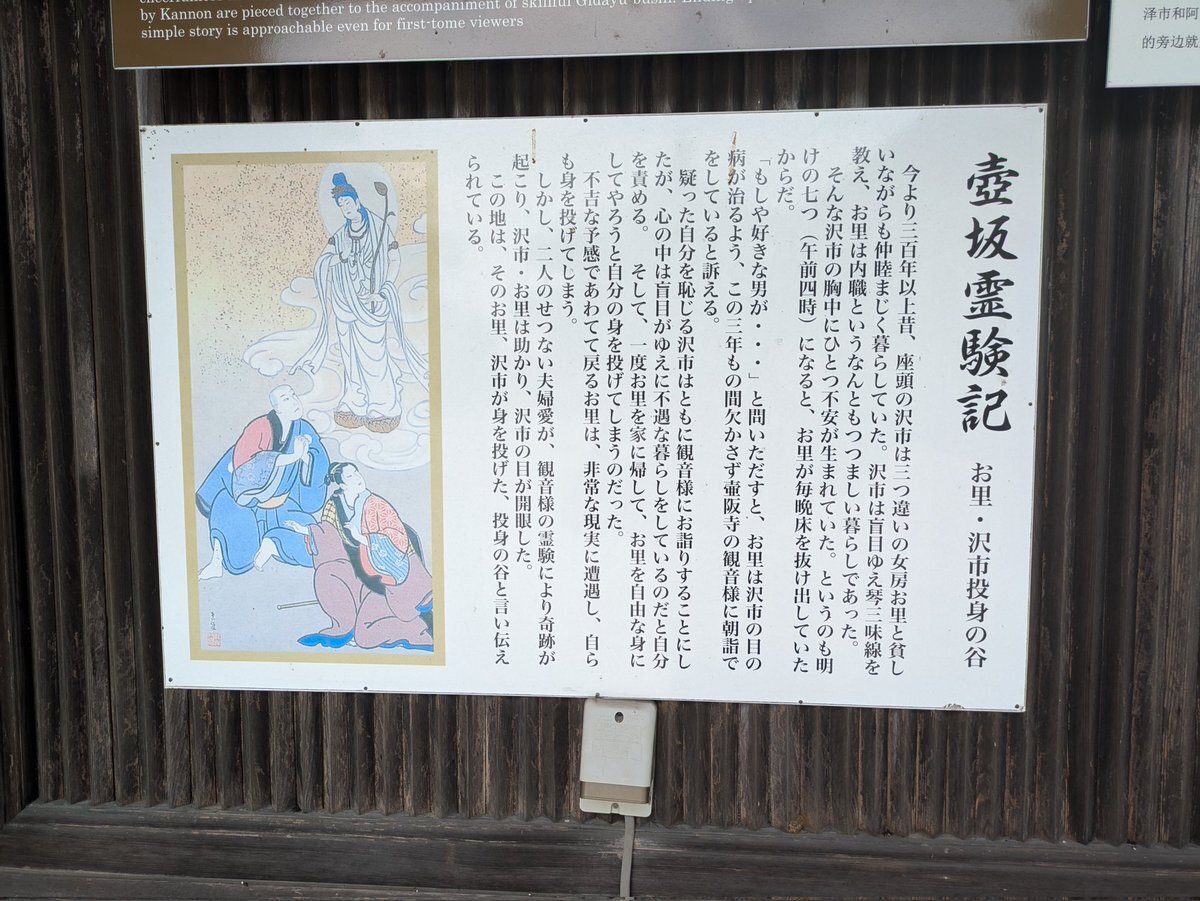 by Kannon are pieced together to the accompaniment of skillful Gidayu-bushi.
simple story is approachable even for first-tome viewers
泽市和阿
的旁边就
壺坂霊験記 お里・沢市投身の谷
今より三百年以上昔、座頭の沢市は三つ違いの女房お里と貧し
いながらも仲睦まじく暮らしていた。沢市は盲目ゆえ琴三味線を
教え、お里は内職というなんともつつましい暮らしであった。
そんな沢市の胸中にひとつ不安が生まれていた。というのも明
けの七つ（午前四時）になると、お里が毎晩床を抜け出していた
からだ。
「もしや好きな男が・・・」と問いただすと、お里は沢市の目の
病が治るよう、この三年もの間欠かさず壷阪寺の観音様に朝詣で
をしていると訴える。
疑った自分を恥じる沢市はともに観音様にお詣りすることにし
たが、心の中は盲目がゆえに不遇な暮らしをしているのだと自分
を責める。 そして、一度お里を家に帰して、お里を自由な身に
してやろうと自分の身を投げてしまうのだった。
不吉な予感であわてて戻るお里は、非常な現実に遭遇し、自ら
も身を投げてしまう。
しかし、二人のせつない夫婦愛が、観音様の霊験により奇跡が
起こり、沢市・お里は助かり、沢市の目が開眼した。
この地は、そのお里、沢市が身を投げた、投身の谷と言い伝え
られている。